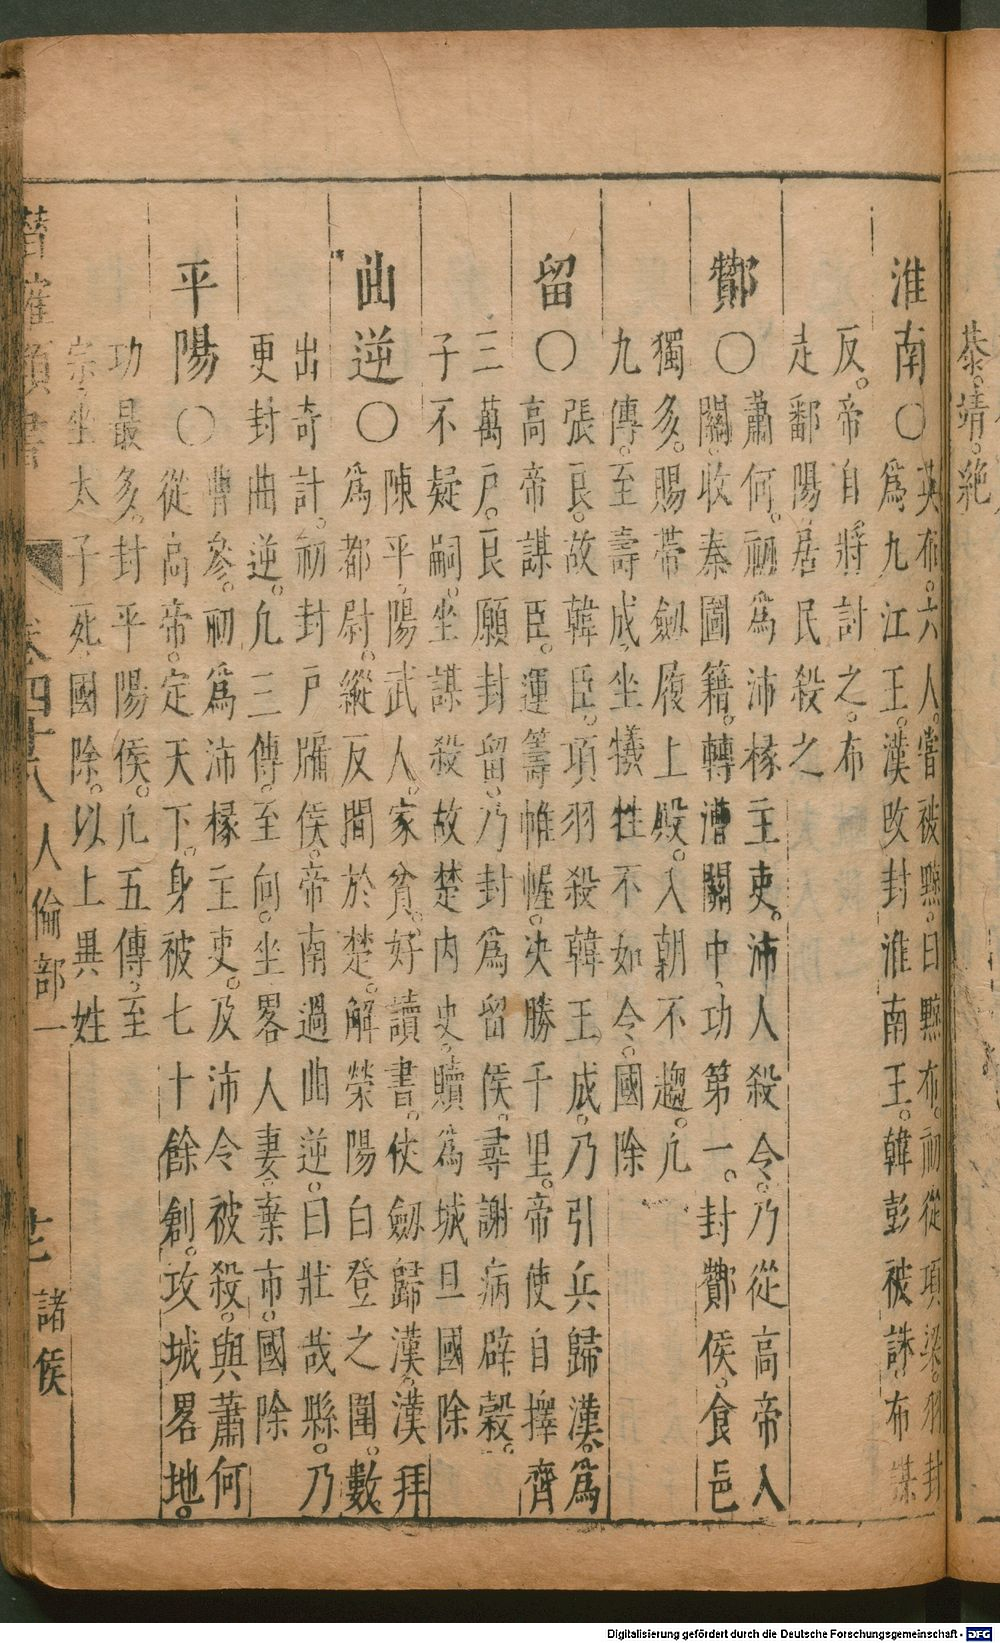 恭。靖。絶
淮南〇英布。六人。嘗被黥。曰黥布。初從項梁。羽封
為九江王。漢改封淮南王。韓彭被誅。布謀
反。帝自將討之。布
走鄱陽。居民殺之
酇〇蕭何。初為沛椽主吏。沛人殺令。乃從高帝入
關。收秦圖籍。轉漕關中。功第一。封酇侯。食邑
獨多。賜帶劍履上殿。入朝不趨。凢
九傳。至壽成。坐犧牲不如令。國除
留〇張良。故韓臣。項羽殺韓王成。乃引兵歸漢。為
高帝謀臣。運籌帷幄。决勝千里。帝使自擇齊
三萬戶。良願封留。乃封為留侯。尋謝病辟穀。
子不疑嗣。坐謀殺故楚内史。贖為城旦國除
曲逆〇陳平。陽武人。家貧。好讀書。仗劔歸漢。漢拜
為都尉。縱反間於楚。解榮陽白登之圍。數
出奇計。初封戶牖侯。帝南過曲逆。曰壯哉縣。乃
更封曲逆。凢三傳。至何。坐畧人妻棄市。國除
平陽〇曹參。初為沛椽主吏。及沛令被殺。與蕭何
從高帝。定天下。身被七十餘創。攻城畧地。
功最多。封平陽侯。凢五傳。至
宗。坐太子死。國除。以上異姓
確類書 卷四十八 人倫部一 諸侯
Digitalisierung gefördert durch die Deutsche Forschungsgemeinschaft - DFG